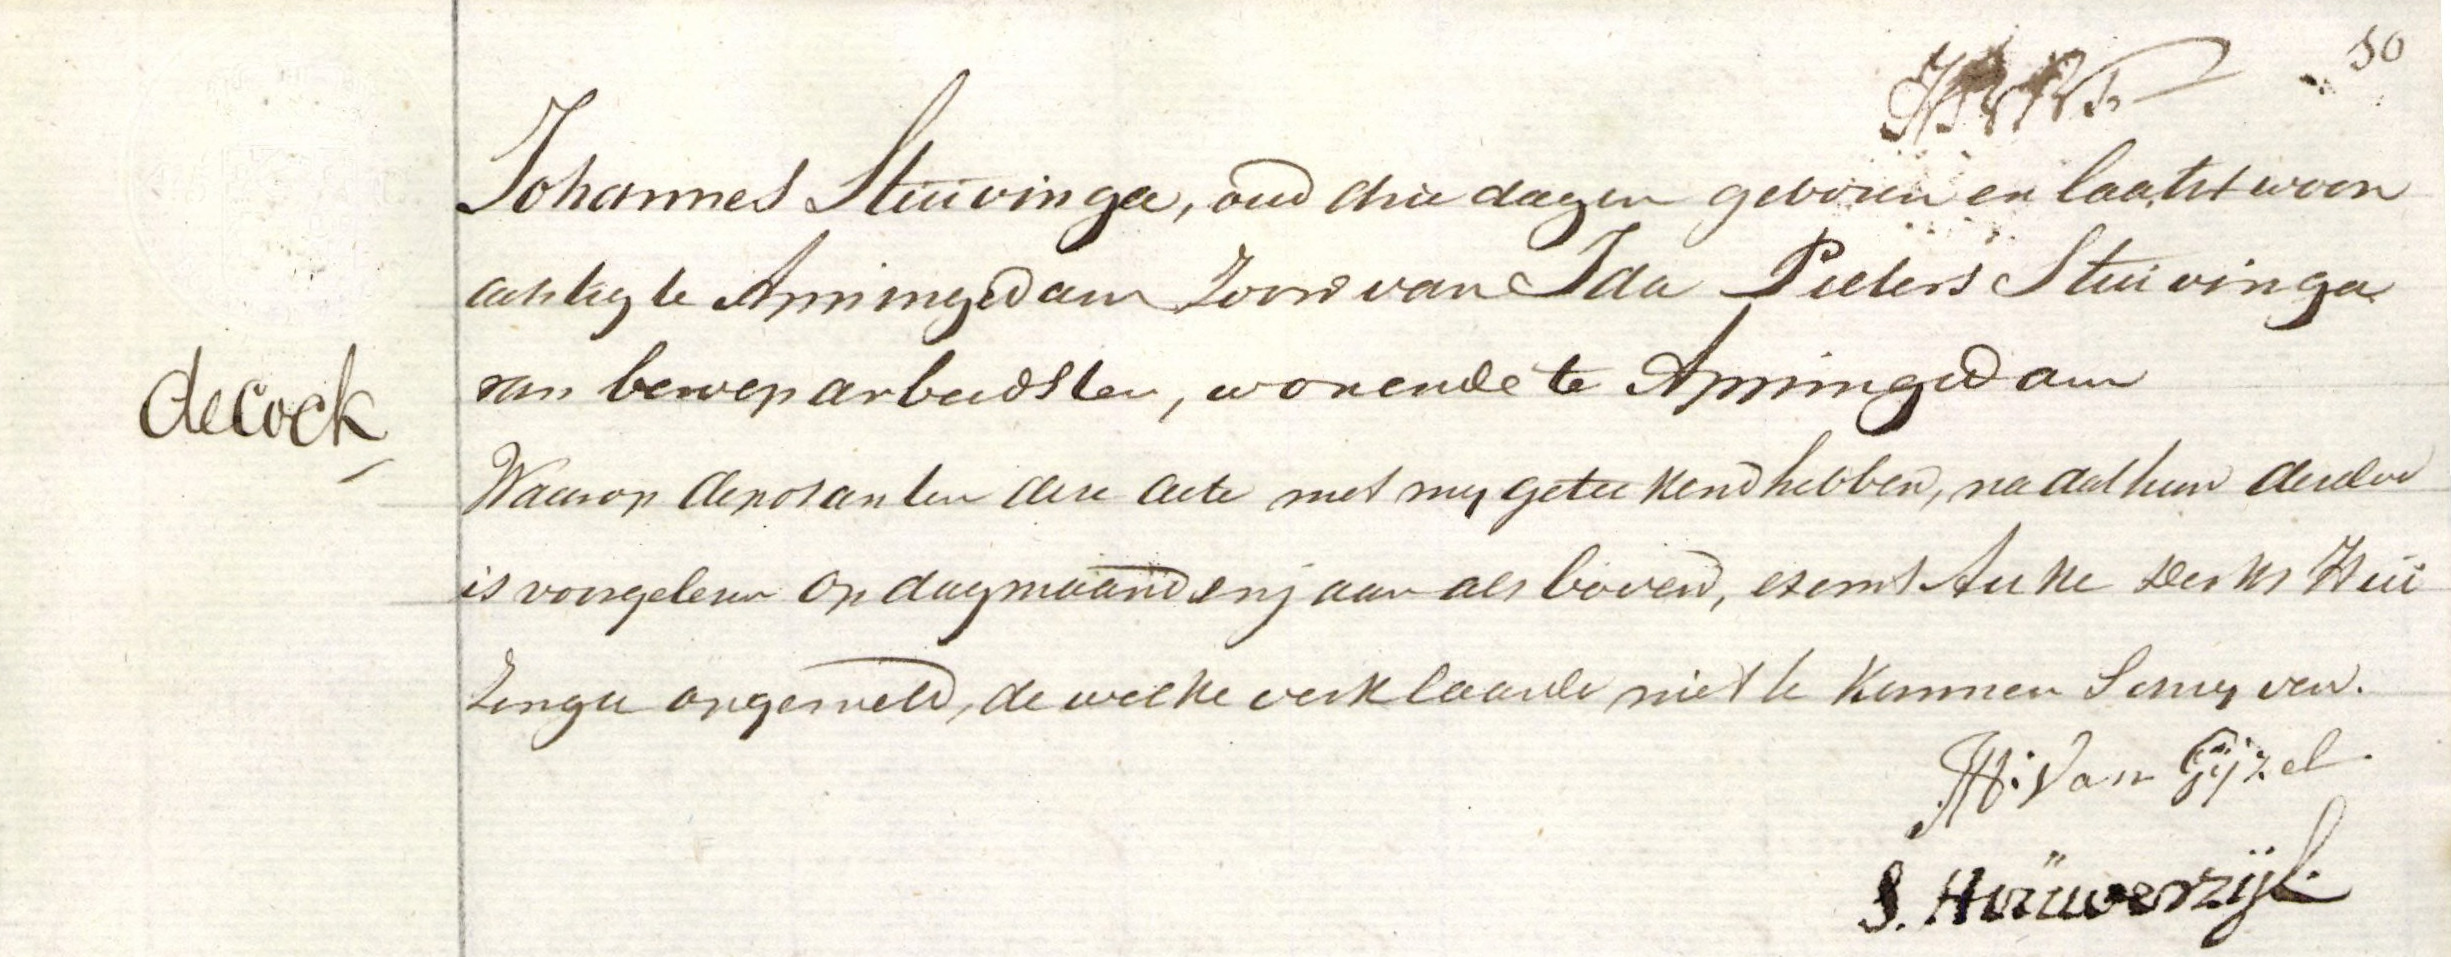 50
Johannes Stuivinga, oud drie dagen geboren en laatst woon
achtig te Appingedam Zoon van Ida Pieters Stuivinga
van beroep arbeidster, wonende te Appingedam
decock
Waarop deposanten dese acte met my geteekend hebben, na dat hun deselve
is voorgelesen op dag maand en jaar als boven, exemt Auke Derks Hui
Zenga opgemeld, de welke verklaarde niet te kunnen Schryven.
H: Van Gijzel.
S. Houwerzijl.